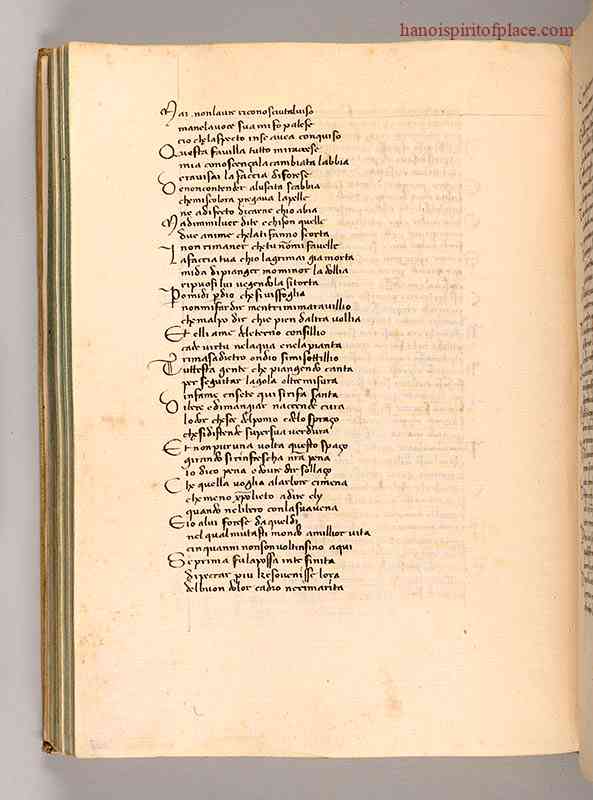 hanoispiritofplace.com
Mai nonlaurie riconosciutalviso
manelavoce sua mi fo palese
cio che laspecto inse avea conquiso
Questa favilla tutto miraccese
mia conoscença la cambiata labbia
eravisai la faccia di forese
De noncontender alascita scabbia
chemiscolora pregava lapelle
ne adifecto dicarne chio abia
Ma dimmiluer dite echison quelle
due anime chelati fanno scorta
non rimaner chetu nomi favelle
La faccia tua chio lagrimai gia morta
mida dipianger mo minor la dollia
rispuosi lui vegendola sitorta
Pero midi p dio che si visfoglia
nonmifardir mentrimimaravillio
che malpo dir chie pien daltra vollia
Et elli ame deleterno consillio
cade virtu nelaqua enela pianta
rimasadietro ondio simisottillio
Tuttesta gente che piangendo canta
per seguitar lagola oltremisura
infame ensete qui sirifa santa
Di bere edimangiar naccende cura
lodor chesce delpomo edelo spraço
chesidistende supersua verdura
Et non pur una volta questo spaço
girando sirinfrescha nra pena
io dico pena edovre dir sollaço
Che quella voglia alarbore cimena
chemeno xpo lieto adire ely
quando neblibero conlasuavena
Et io alui forese daqueldi
nel qual mutasti mondo amillior vita
cinquanni nonsonvoltinsino aqui
Se prima fulapossa inte finita
dipeccar piu
delbuon dolor cadio nerimarita